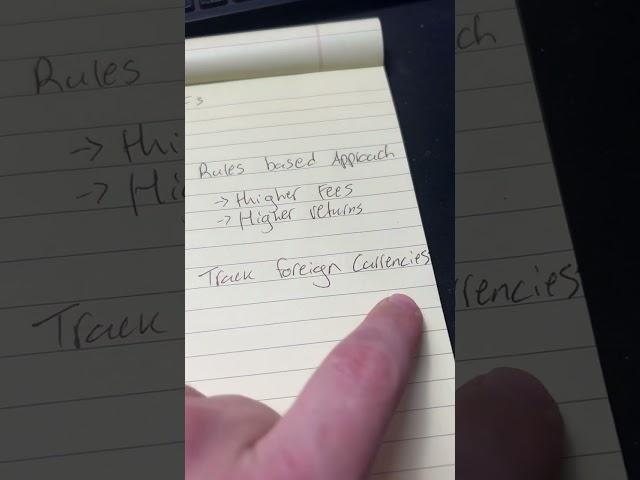 Rules based Approach
-> Higher Fees
-> Higher returns
Track foreign Currencies